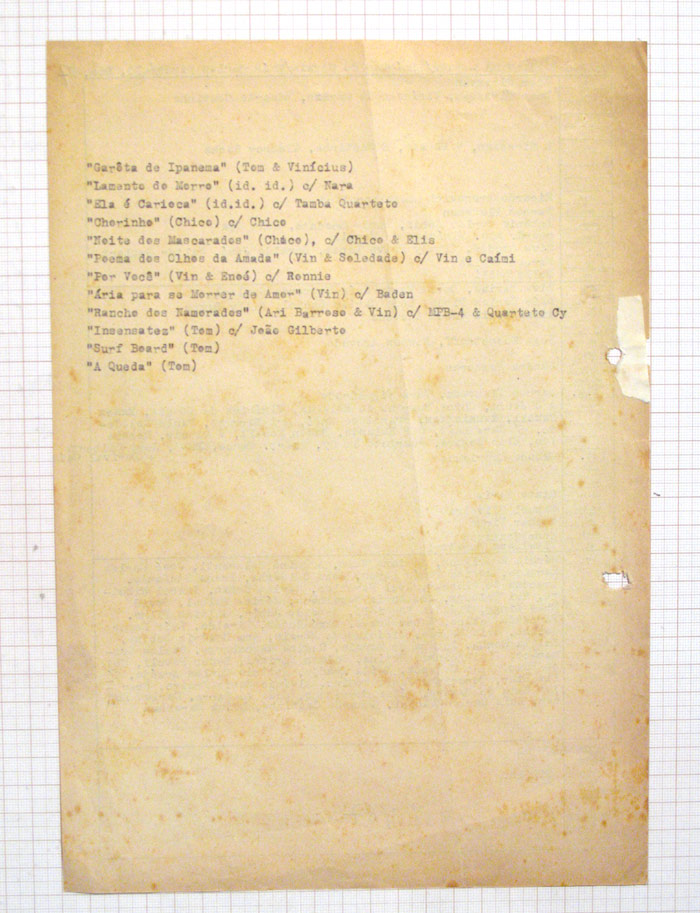 "Garôta de Ipanema" (Tom & Vinícius)
"Lamento do Morro" (id. id.) c/ Nara
"Ela é Carioca" (id.id.) c/ Tamba Quarteto
"Chorinho" (Chico) c/ Chico
"Noite dos Mascarados" (Chico), c/ Chico & Elis
"Poema dos Olhos da Amada" (Vin & Soledade) c/ Vin e Caími
"Por Você" (Vin & Eneé) c/ Ronnie
"Ária para se Morrer de Amor" (Vin) c/ Baden
"Rancho dos Namorados" (Ari Barroso & Vin) c/ MPB-4 & Quarteto Cy
"Insensatez" (Tom) c/ João Gilberto
"Surf Board" (Tom)
"A Queda" (Tom)